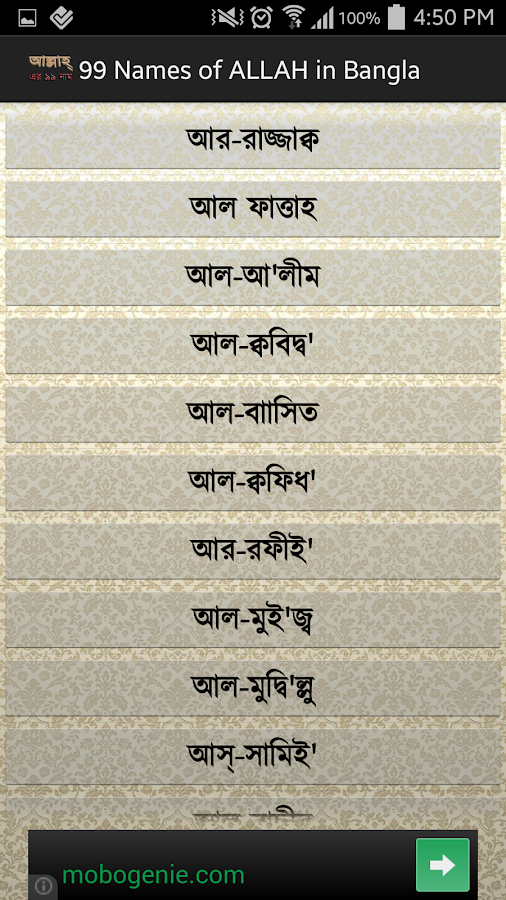 100%
4:50 PM
আল্লাহ্
এর ৯৯ নাম
99 Names of ALLAH in Bangla
আর-রাজ্জাক্ব
আল ফাত্তাহ
আল-আ'লীম
আল-ক্ববিদ্ব'
আল-বাাসিত
আল-ক্বফিধ'
আর-রফীই'
আল-মুই'জ্ব
আল-মুদ্বি'ল্লু
আস্-সামিই'
mobogenie.com